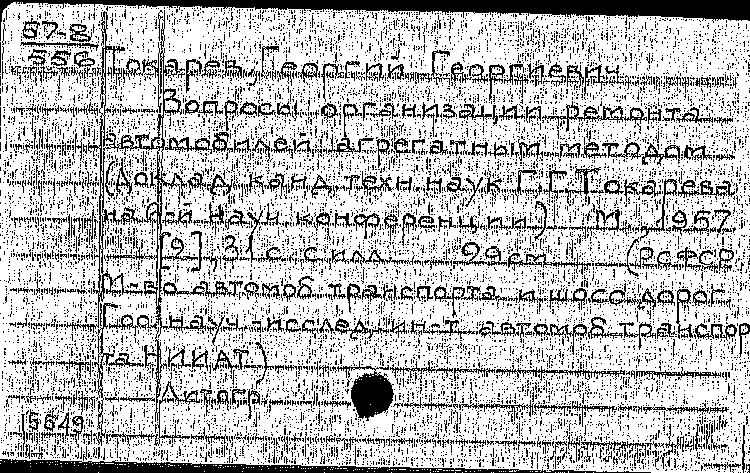 57-8
556
Токарев, Георгий Георгиевич
Вопросы организации ремонта
автомобилей агрегатным методом
(Доклад канд. техн. наук Г. Г. Токарева
на науч. конференции) М., 1957
[9], 31 с. с илл. 29 см (РСФСР
М-во автомоб. транспорта и шосс. дорог
Гос. науч.-исслед. инст. автомоб. транспор
та НИИАТ)
Литогр.
15549